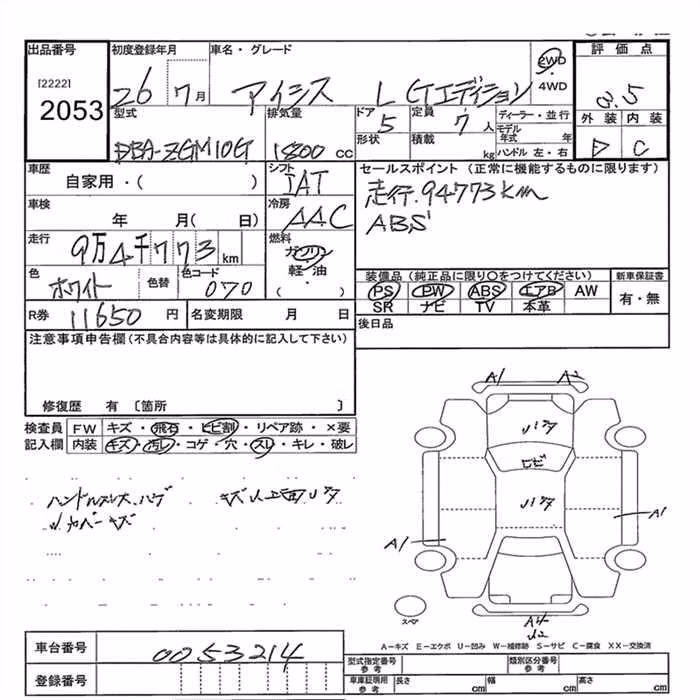 出品番号 初度登録年月 車名・グレード 2WD 4WD 評価点
[2222]
2053
26 7月 アイシス L Gエディション 3.5
型式 排気量 ドア 定員 ディーラー・並行 外装 内装
5 7人 モデル年式 年
DBA-ZGM10G 1800cc 形状 積載 kg ハンドル 左・右 D C
車歴 シフト セールスポイント (正常に機能するものに限ります)
自家用・( ) IAT 走行.94773km
車検 冷房 ABS
年 月( 日) AAC
走行 燃料
9万4千773km ガソリン
色 色替 色コード 軽・油 装備品 (純正品に限り○をつけてください) 新車保証書
ホワイト 070 ( ) PS PW ABS エアB AW 有・無
SR ナビ TV 本革
R券 11650円 名変期限 月 日 後日品
注意事項申告欄(不具合内容等は具体的に記入して下さい)
修復歴 有 〔箇所 〕
検査員 FW キズ・飛石・ヒビ割・リペア跡・×要
記入欄 内装 キズ・汚レ・コゲ・穴・スレ・キレ・破レ
A1 A2
ヒビ
A1
A1
スペア
A-キズ E-エクボ U-凹み W-補修跡 S-サビ C-腐食 XX-交換済
車台番号 0053214
型式指定番号 参考 類別区分番号 参考
登録番号 車庫証明用 参考 長さ cm 幅 cm 高さ cm